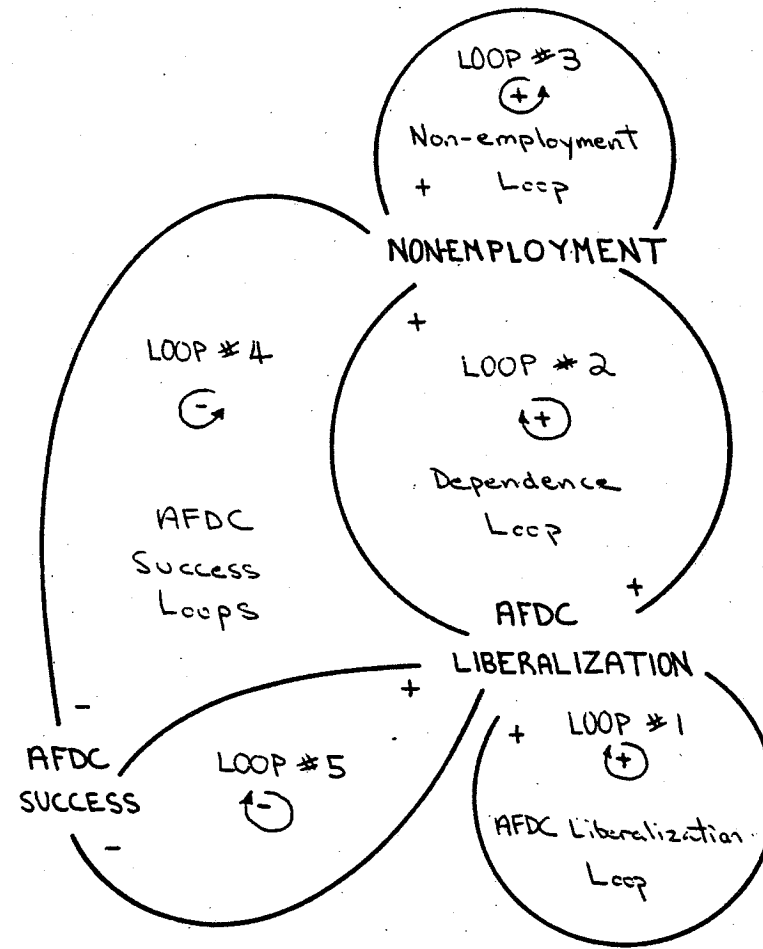 LOOP #3
+
Non-employment
+ Loop
NON-EMPLOYMENT
+
LOOP #4
LOOP #2
-
+
Dependence
Loop
AFDC
Success
Loops
+
AFDC
LIBERALIZATION
-
+
+ LOOP #1
+
AFDC
SUCCESS
LOOP #5
-
-
AFDC Liberalization
Loop